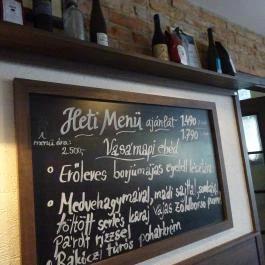 Heti Menü ajánlat 1.490
1.790
A menü ára:
2.500,-
Vasárnapi ebéd
• Erőleves borjúmájas
• Medvehagymával, mádi sajttal, sonkával
töltött sertés karaj vajas zöldborsó püré
párolt rizzsel
• Rákóczi túrós pohárkrém